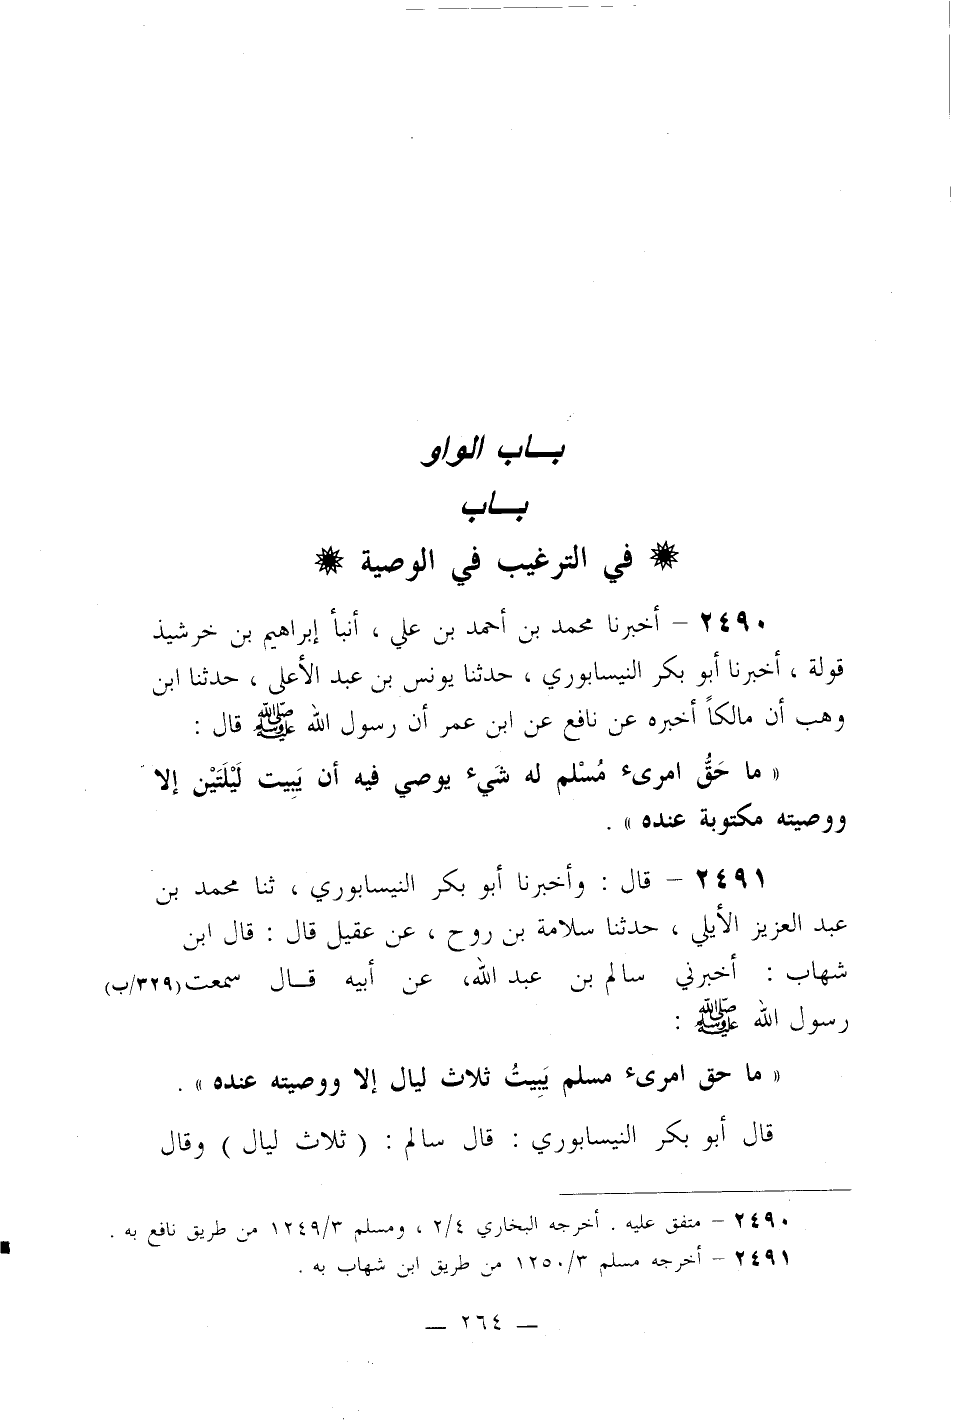 بـــاب الواو
بـــاب
في الترغيب في الوصية
٢٤٩٠ – أخبرنا محمد بن أحمد بن علي ، أنبأ إبراهيم بن خرشيذ
قولة ، أخبرنا أبو بكر النيسابوري ، حدثنا يونس بن عبد الأعلى ، حدثنا ابن
وهب أن مالكاً أخبره عن نافع عن ابن عمر أن رسول الله ﷺ قال :
« ما حَقُّ امرىء مُسْلم له شَيء يوصي فيه أن يَبِيت لَيْلَتَيْن إلا
ووصيته مكتوبة عنده » .
٢٤٩١ – قال : وأخبرنا أبو بكر النيسابوري ، ثنا محمد بن
عبد العزيز الأيلي ، حدثنا سلامة بن روح ، عن عقيل قال : قال ابن
شهاب : أخبرني سالم بن عبد الله، عن أبيه قـــال سمعت (٣٢٩/ب)
رسول الله ﷺ :
« ما حق امرىء مسلم يَبِيتُ ثلاث ليال إلا ووصيته عنده » .
قال أبو بكر النيسابوري : قال سالم : ( ثلاث ليال ) وقال
٢٤٩٠ – متفق عليه . أخرجه البخاري ٢/٤ ، ومسلم ١٢٤٩/٣ من طريق نافع به .
٢٤٩١ – أخرجه مسلم ١٢٥٠/٣ من طريق ابن شهاب به .
— ٢٦٤ —